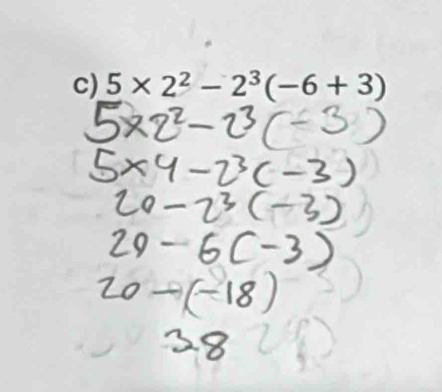 c) 5 × 2² − 2³(−6 + 3)
5×2²−2³(−3)
5×4−2³(−3)
20−2³(−3)
20−6(−3)
20−(−18)
38